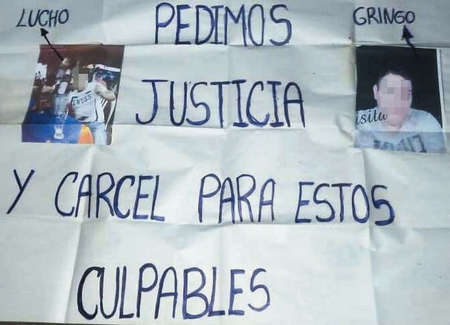 LUCHO
PEDIMOS
GRINGO
JUSTICIA
Y CARCEL PARA ESTOS
CULPABLES